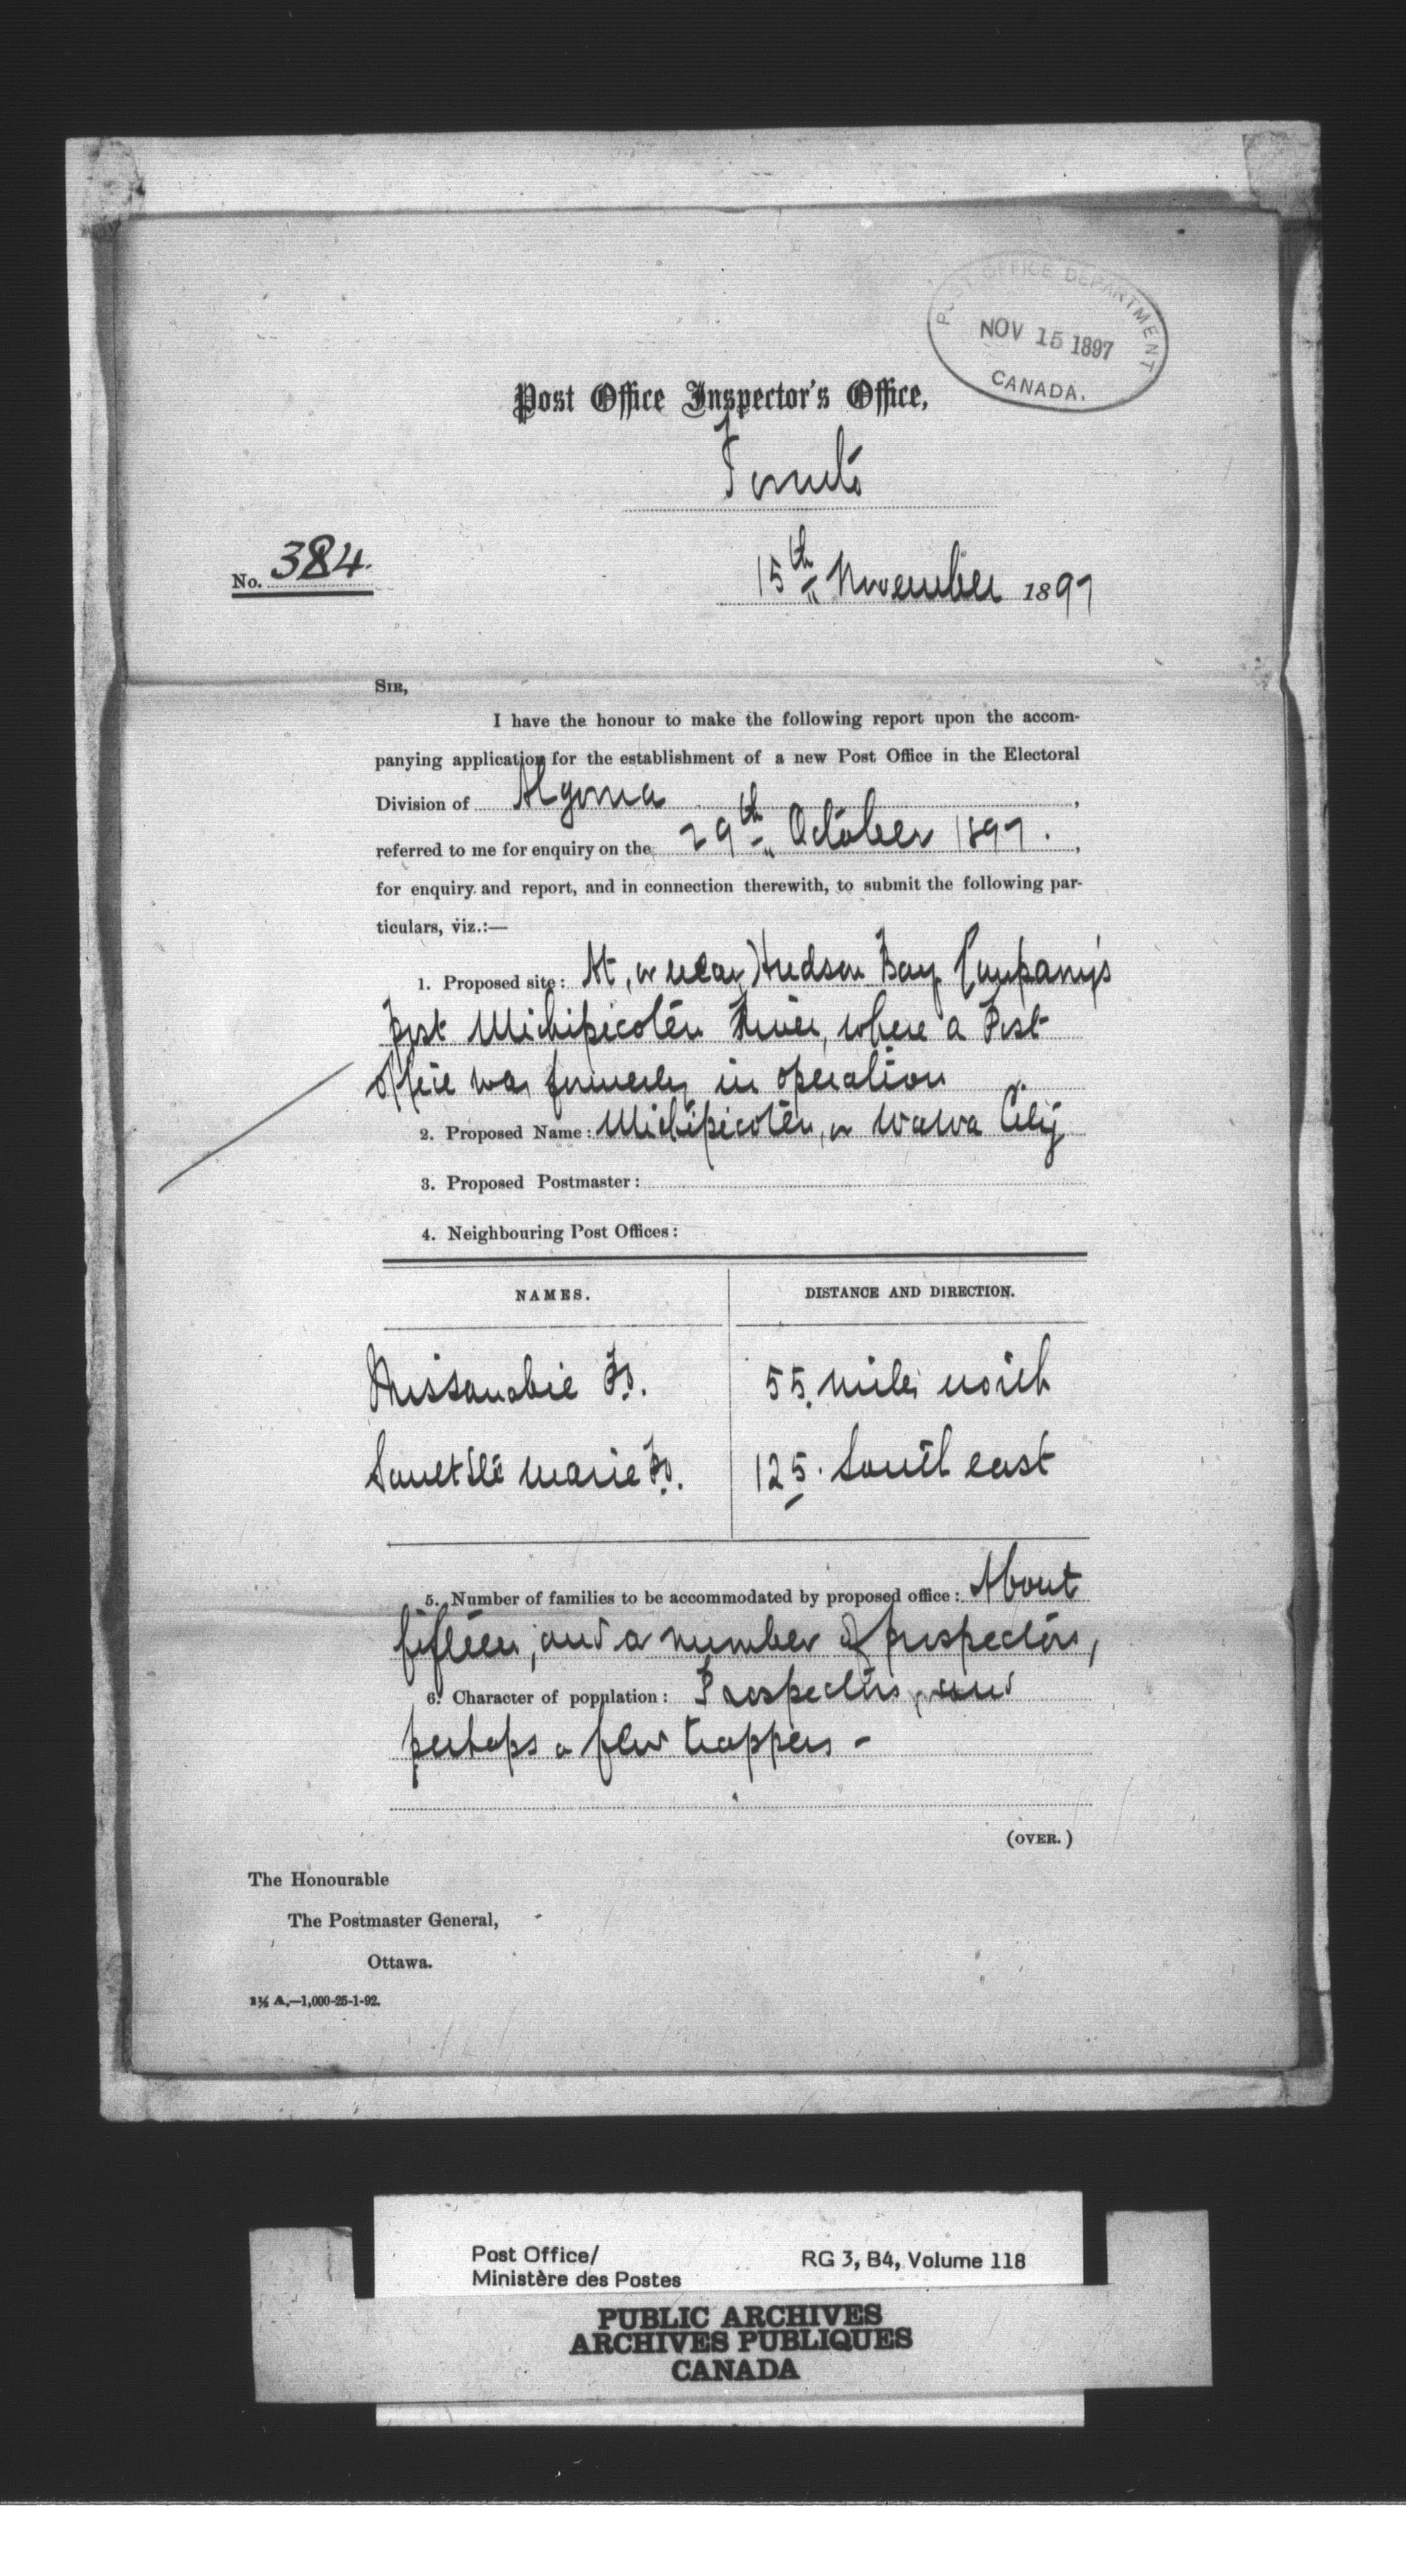 POST OFFICE DEPARTMENT
NOV 15 1897
CANADA.
Post Office Inspector's Office,
Toronto
No. 384.
15th November 1897
SIR,
I have the honour to make the following report upon the accom-
panying application for the establishment of a new Post Office in the Electoral
Division of Algoma,
referred to me for enquiry on the 29th October 1897.,
for enquiry and report, and in connection therewith, to submit the following par-
ticulars, viz.:—
1. Proposed site: At, or near, Hudson Bay Company's
Post Michipicoten River, where a Post
Office was formerly in operation
2. Proposed Name: Michipicoten, or Wawa City
3. Proposed Postmaster:
4. Neighbouring Post Offices:
NAMES. DISTANCE AND DIRECTION.
Missanabie P.O. 55 miles north
Sault Ste Marie P.O. 125. South east
5. Number of families to be accommodated by proposed office: About
fifteen, and a number of prospectors,
6. Character of population: Prospectors, and
perhaps a few trappers -
(OVER.)
The Honourable
The Postmaster General,
Ottawa.
1½ A.—1,000-25-1-92.
Post Office/ RG 3, B4, Volume 118
Ministère des Postes
PUBLIC ARCHIVES
ARCHIVES PUBLIQUES
CANADA